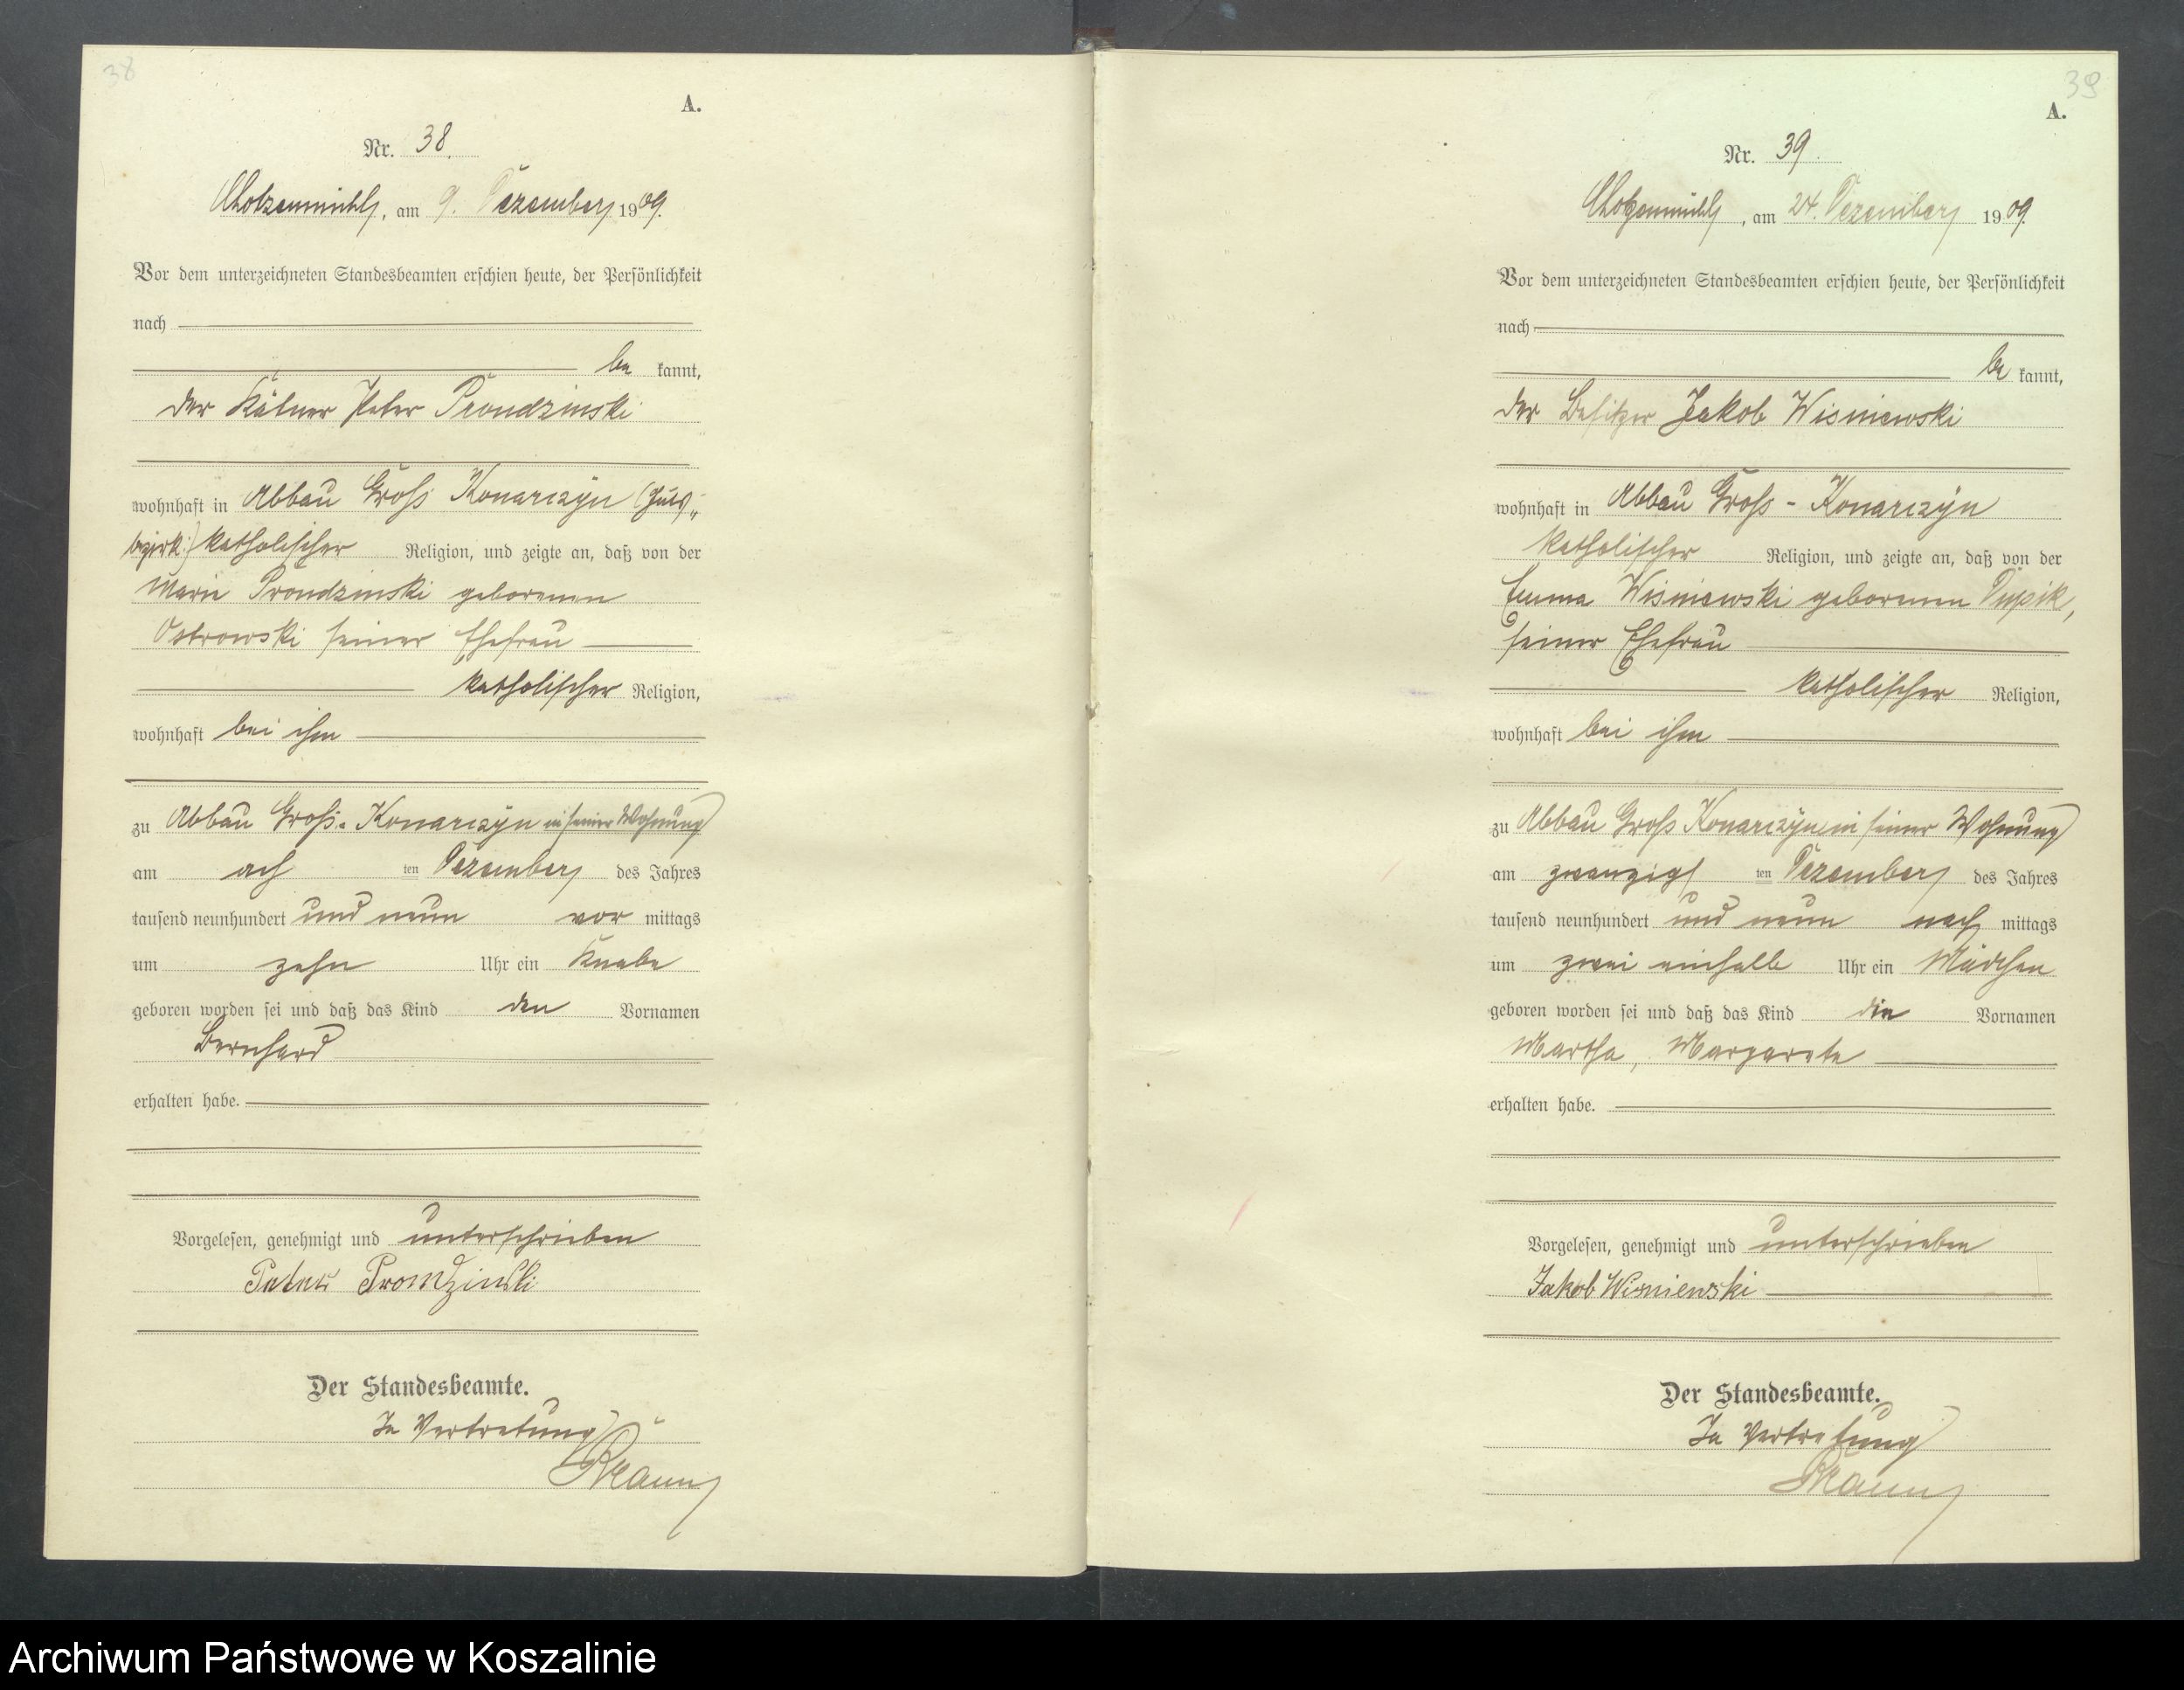 38
A.
Nr. 38.
Chotzenmühl, am 9. Dezember 1909.
Vor dem unterzeichneten Standesbeamten erschien heute, der Persönlichkeit
nach
be kannt,
der Kätner Peter Prondzinski
wohnhaft in Abbau Groß Konarczyn (Guts-
bezirk) katholischer Religion, und zeigte an, daß von der
Marie Prondzinski geborenen
Ostrowski seiner Ehefrau
katholischer Religion,
wohnhaft bei ihm
zu Abbau Groß-Konarczyn in seiner Wohnung
am ach ten Dezember des Jahres
tausend neunhundert und neun vor mittags
um zehn Uhr ein Knabe
geboren worden sei und daß das Kind den Vornamen
Bernhard
erhalten habe.
Vorgelesen, genehmigt und unterschrieben
Peter Prondzinski
Der Standesbeamte.
In Vertretung
39
A.
Nr. 39.
Chotzenmühl, am 24. Dezember 1909.
Vor dem unterzeichneten Standesbeamten erschien heute, der Persönlichkeit
nach
be kannt,
der Besitzer Jakob Wisniewski
wohnhaft in Abbau Groß-Konarczyn
katholischer Religion, und zeigte an, daß von der
Emma Wisniewski geborenen Pupik,
seiner Ehefrau
katholischer Religion,
wohnhaft bei ihm
zu Abbau Groß Konarczyn in seiner Wohnung
am zwanzigs ten Dezember des Jahres
tausend neunhundert und neun nach mittags
um zwei einhalb Uhr ein Mädchen
geboren worden sei und daß das Kind die Vornamen
Martha, Margarete
erhalten habe.
Vorgelesen, genehmigt und unterschrieben
Jakob Wisniewski
Der Standesbeamte.
In Vertretung
Archiwum Państwowe w Koszalinie